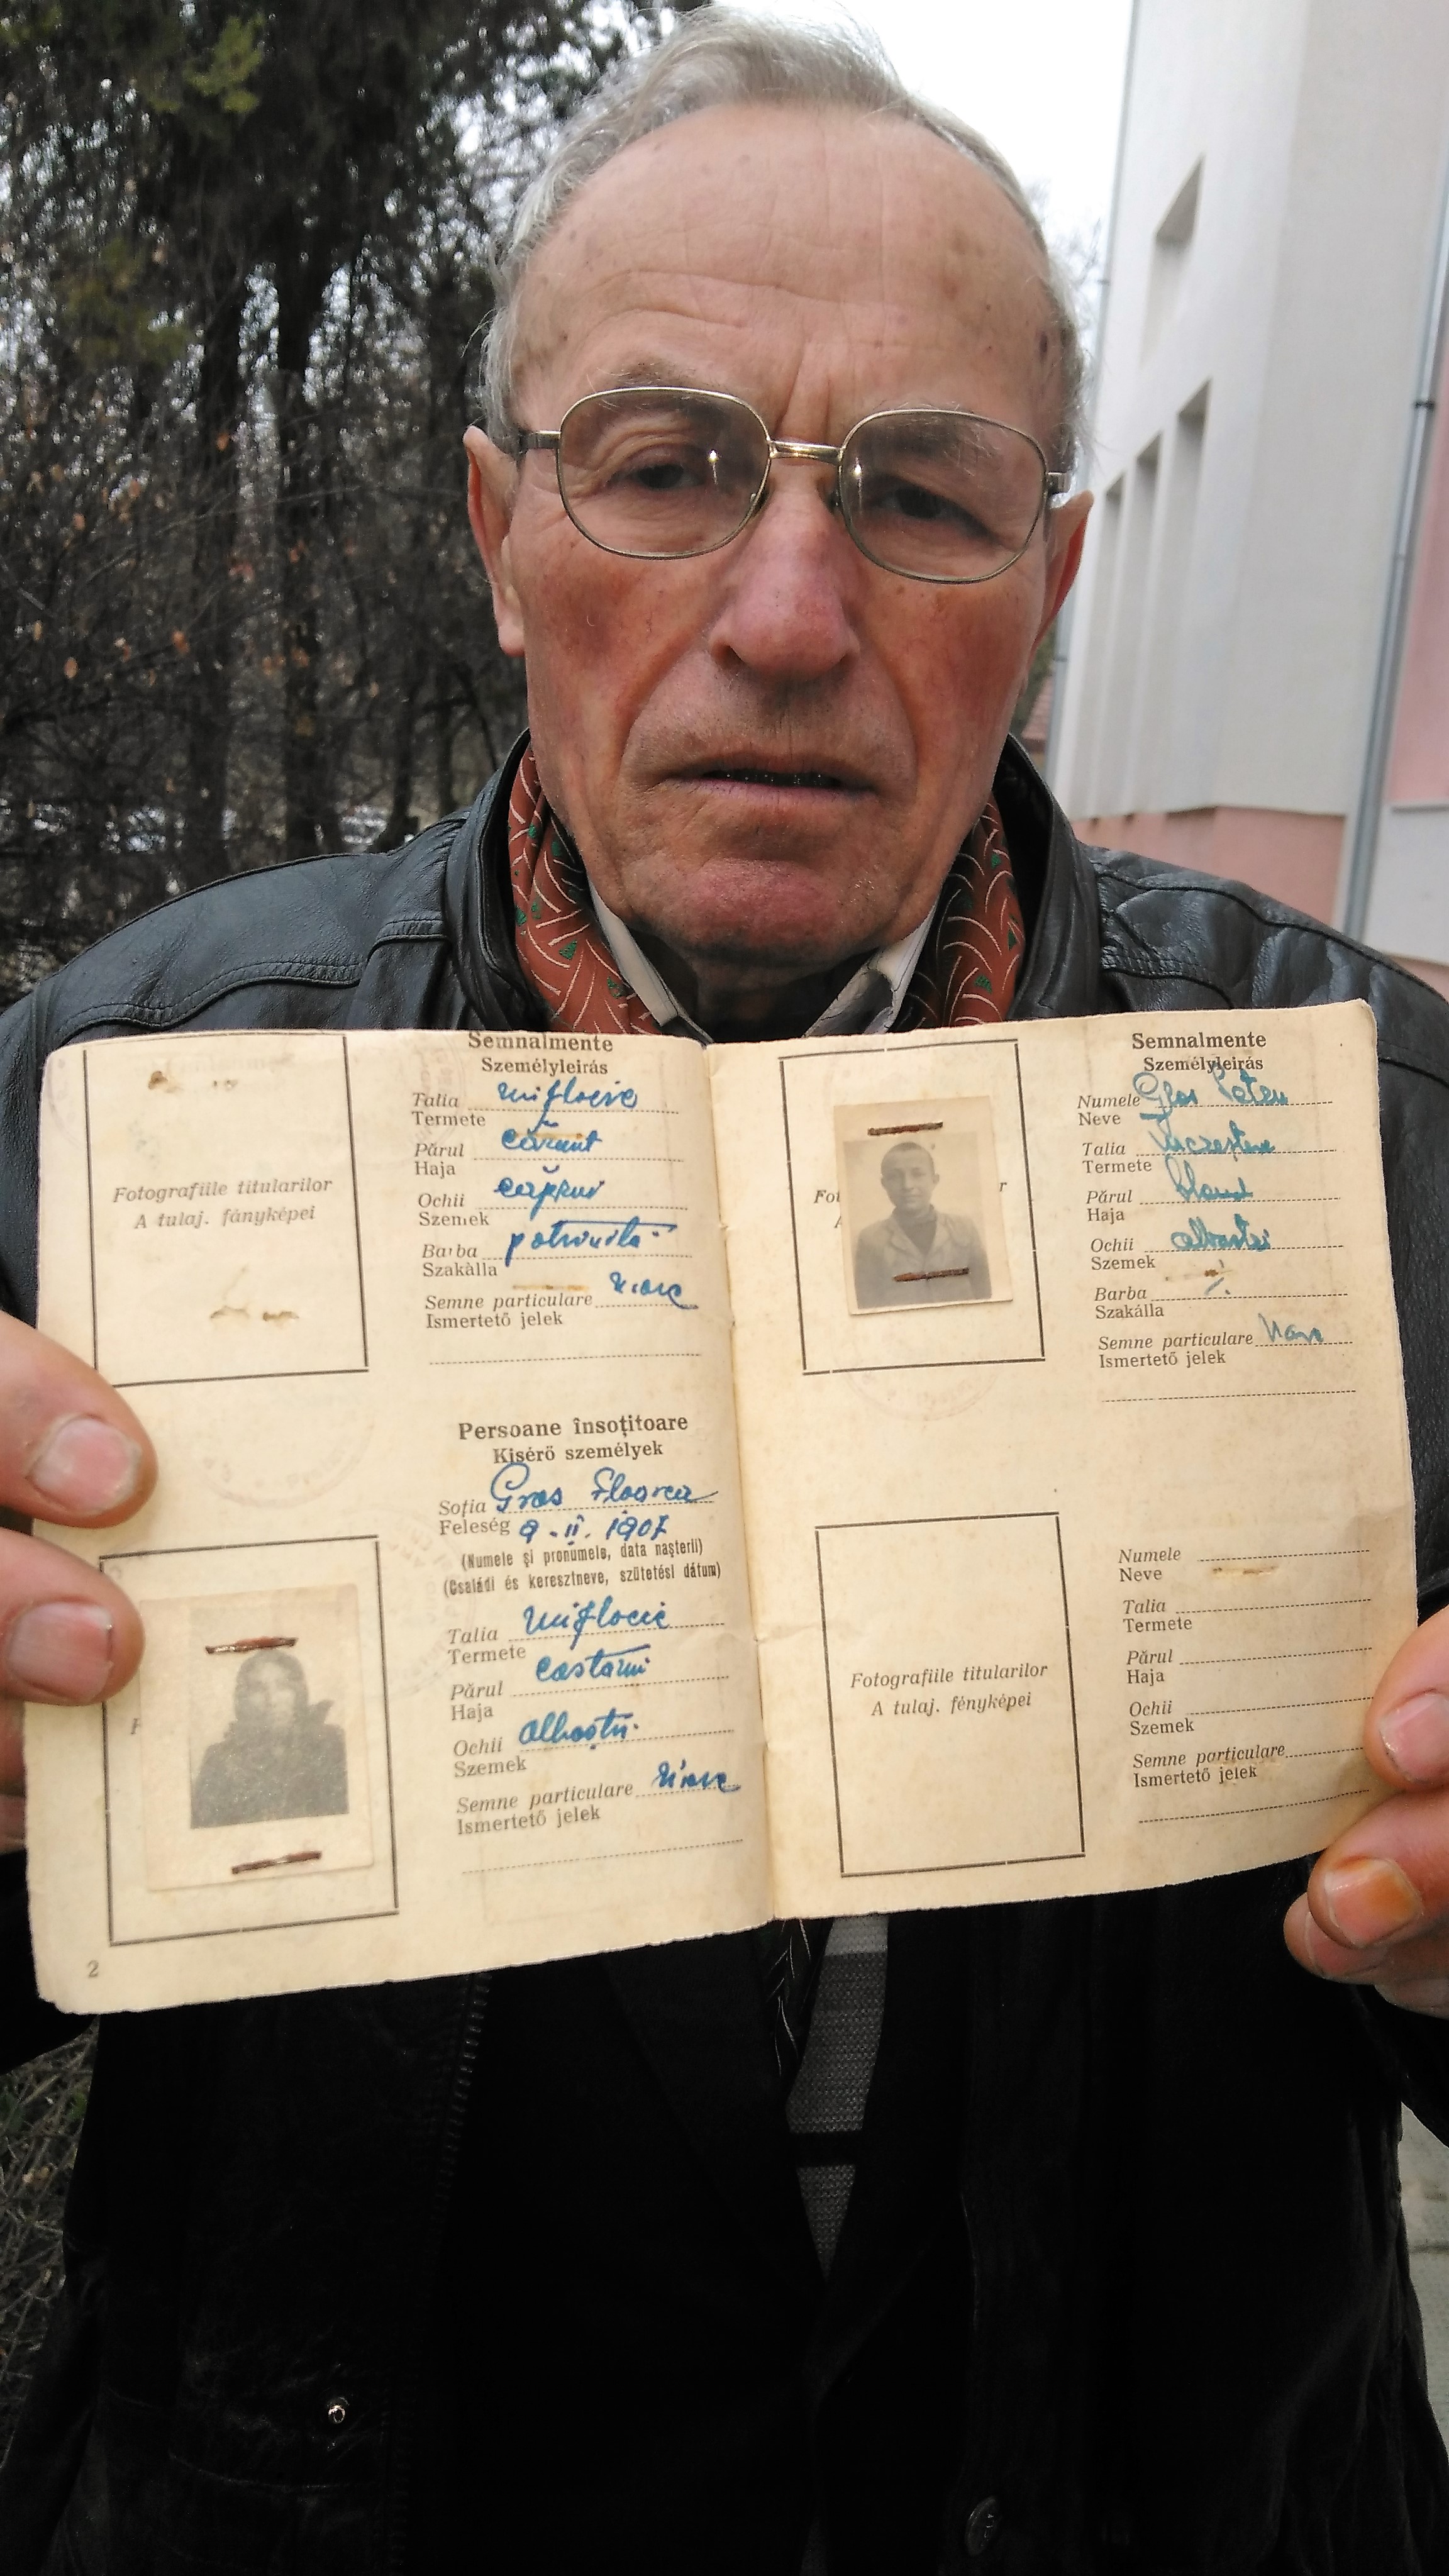 Semnalmente
Személyleirás
Talia mijlocie
Termete
Părul cărunt
Haja
Ochii căprui
Szemek
Barba potrivită
Szakálla
Semne particulare
Ismertető jelek
Fotografiile titularilor
A tulaj. fányképei
Persoane însoțitoare
Kisérő személyek
Soția Gros Floarea
Feleség 9.II.1907
(Numele și pronumele, data nașterii)
(Családi és keresztneve, szütetési dátum)
Talia mijlocie
Termete
Părul castanii
Haja
Ochii albaștri
Szemek
Semne particulare
Ismertető jelek
2
Semnalmente
Személyleirás
Numele
Neve
Talia
Termete
Părul blond
Haja
Ochii albaștri
Szemek
Barba
Szakálla
Semne particulare
Ismertető jelek
Fotografiile titularilor
A tulaj. fényképei
Numele
Neve
Talia
Termete
Părul
Haja
Ochii
Szemek
Semne particulare
Ismertető jelek